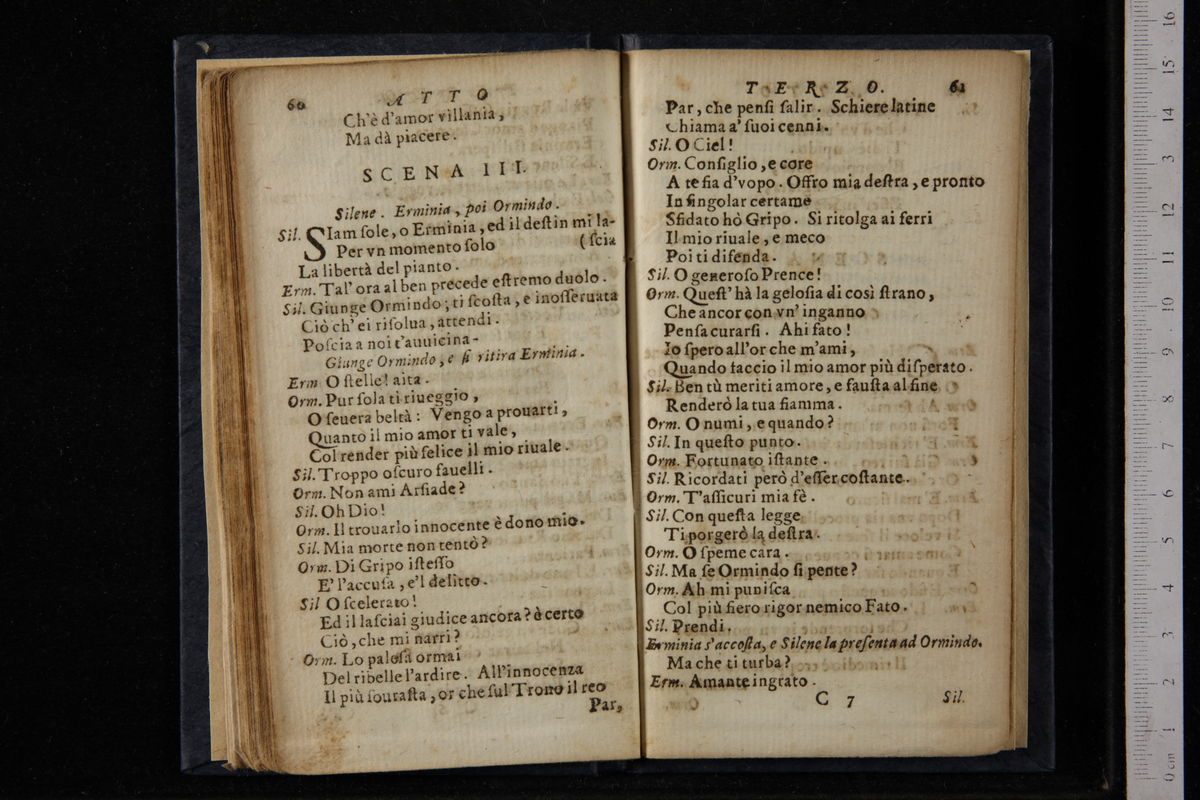 60 ATTO
Ch'è d'amor villania,
Ma dà piacere.
SCENA III.
Silene. Erminia, poi Ormindo.
Sil. SIam sole, o Erminia, ed il destin mi la-
Per vn momento solo (scia
La libertà del pianto.
Erm. Tal' ora al ben precede estremo duolo.
Sil. Giunge Ormindo; ti scosta, e inosseruata
Ciò ch'ei risolua, attendi.
Poscia a noi t'auuicina-
Giunge Ormindo, e si ritira Erminia.
Erm O stelle! aita.
Orm. Pur sola ti riueggio,
O seuera beltà: Vengo a prouarti,
Quanto il mio amor ti vale,
Col render più felice il mio riuale.
Sil. Troppo oscuro fauelli.
Orm. Non ami Arsiade?
Sil. Oh Dio!
Orm. Il trouarlo innocente è dono mio.
Sil. Mia morte non tentò?
Orm. Di Gripo istesso
E' l'accusa, e'l delitto.
Sil O scelerato!
Ed il lasciai giudice ancora? è certo
Ciò, che mi narri?
Orm. Lo palesa ormai
Del ribelle l'ardire. All'innocenza
Il più sourasta, or che sul Trono il reo
Par,
TERZO. 61
Par, che pensi salir. Schiere latine
Chiama a' suoi cenni.
Sil. O Ciel!
Orm. Consiglio, e core
A te sia d'vopo. Offro mia destra, e pronto
In singolar certame
Sfidato hò Gripo. Si ritolga ai ferri
Il mio riuale, e meco
Poi ti difenda.
Sil. O generoso Prence!
Orm. Quest' hà la gelosia di così strano,
Che ancor con vn' inganno
Pensa curarsi. Ahi fato!
Io spero all'or che m'ami,
Quando faccio il mio amor più disperato.
Sil. Ben tù meriti amore, e fausta al fine
Renderò la tua fiamma.
Orm. O numi, e quando?
Sil. In questo punto.
Orm. Fortunato istante.
Sil. Ricordati però d'esser costante.
Orm. T'assicuri mia fè.
Sil. Con questa legge
Ti porgerò la destra.
Orm. O speme cara.
Sil. Ma se Ormindo si pente?
Orm. Ah mi punisca
Col più fiero rigor nemico Fato.
Sil. Prendi.
Erminia s'accosta, e Silene la presenta ad Ormindo.
Ma che ti turba?
Erm. Amante ingrato.
C 7 Sil.
0 cm 1 2 3 4 5 6 7 8 9 10 11 12 13 14 15 16